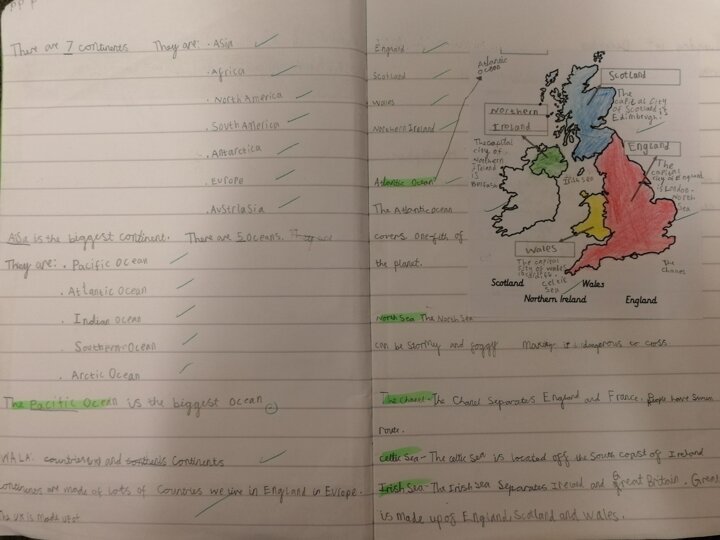 There are 7 continents They are: . Asia
. Africa
. North America
. South America
. Antarctica
. Europe
. Austrlasia
Asia is the biggest continent. There are 5 oceans.
They are: . Pacific Ocean
. Atlantic Ocean
. Indian Ocean
. Southern Ocean
. Arctic Ocean
The Pacific Ocean is the biggest ocean
WALA. countries and Continents
continents are made of lots of Countries we live in England in Europe.
The UK is made up of
England
Scotland
Wales
Northern Ireland
Atlantic Ocean
The Atlantic ocean
covers one-fifth of
the planet.
North Sea The North Sea
can be Stormy and foggy Making it dangerous to cross
The Chanel-The Chanel Separates England and France. People have Swum
route.
Celtic Sea-The celtic Sea is located off the South coast of Ireland
Irish Sea-The Irish Sea Separates Ireland and Great Britain. Great
is made up of England, Scotland and Wales.
Atlantic
Ocean
Scotland
The
capital city
of Scotland is
Edimbrugh
Northern
Ireland
The capital
city of
Northern
Ireland
is
Belfast
Irish Sea
England
The
capital
city of England
is London
North
Sea
Wales
The capital
city of wales
is cardiff.
Celtic
Sea
The
Chanel
Scotland Wales
Northern Ireland England